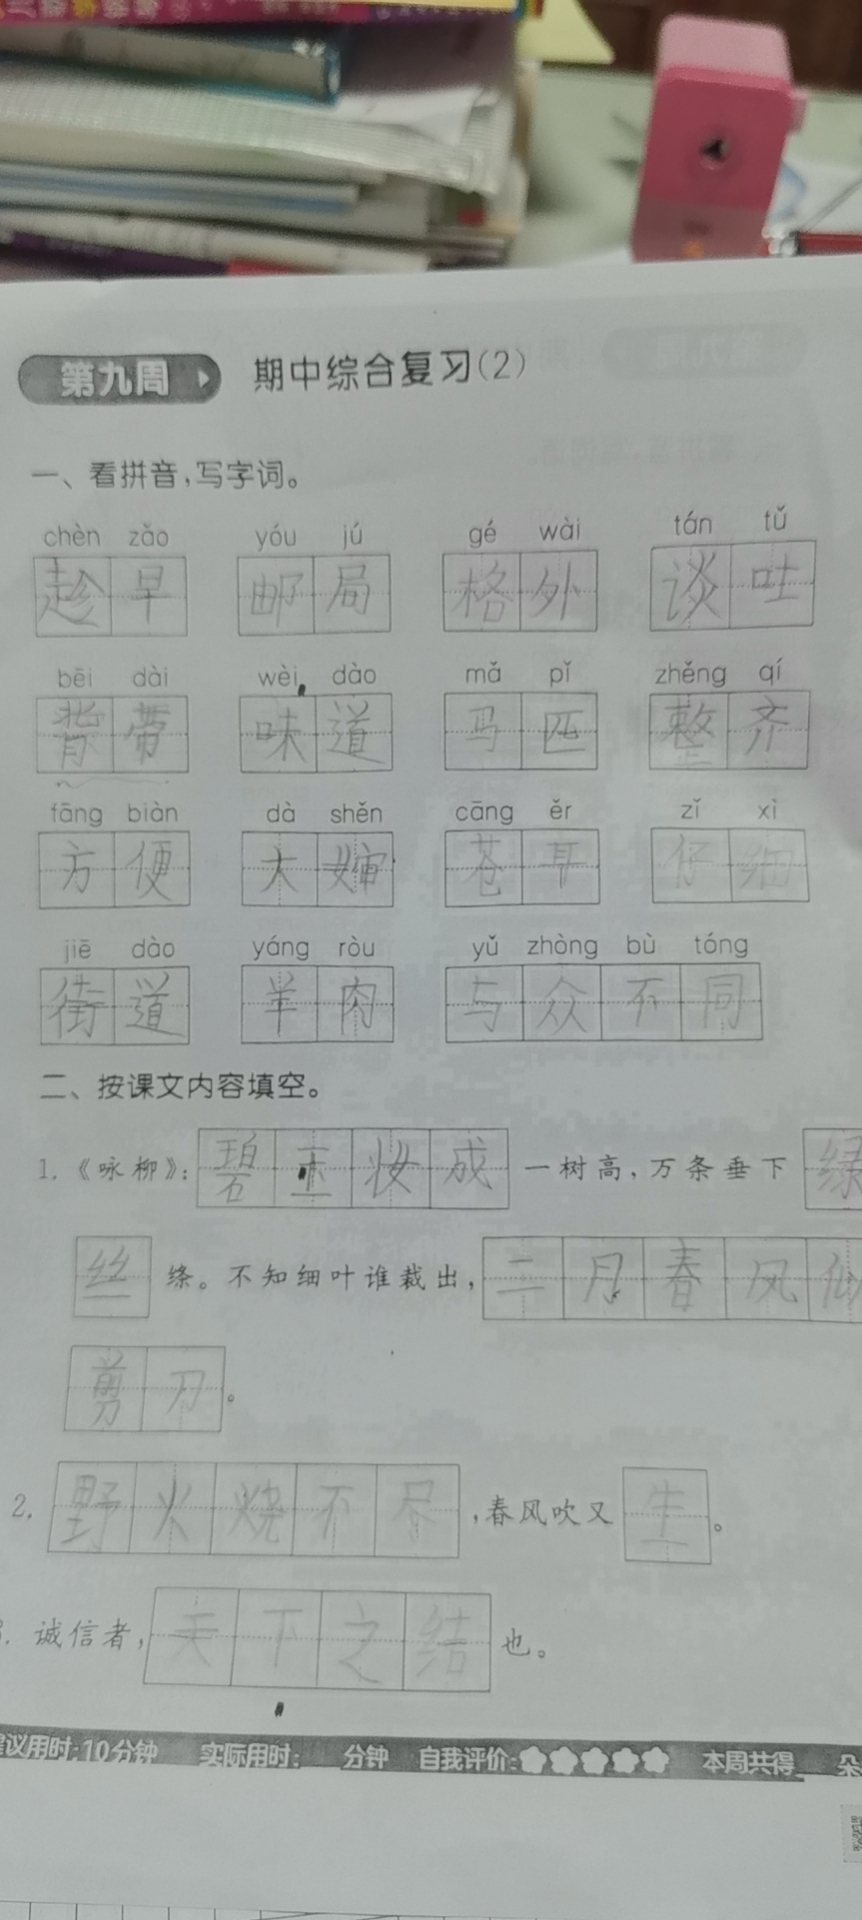 第九周 期中综合复习(2)
一、看拼音,写字词。
chèn zǎo yóu jú gé wài tán tǔ
趁早 邮局 格外 谈吐
bēi dài wèi dào mǎ pǐ zhěng qí
背带 味道 马匹 整齐
fāng biàn dà shěn cāng ěr zǐ xì
方便 大婶 苍耳 仔细
jiē dào yáng ròu yǔ zhòng bù tóng
街道 羊肉 与众不同
二、按课文内容填空。
1.《咏柳》:碧玉妆成一树高,万条垂下绿
丝绦。不知细叶谁裁出,二月春风似
剪刀。
2.野火烧不尽,春风吹又生。
3.诚信者,天下之结也。
议用时:10分钟 实际用时: 分钟 自我评价: 本周共得 朵